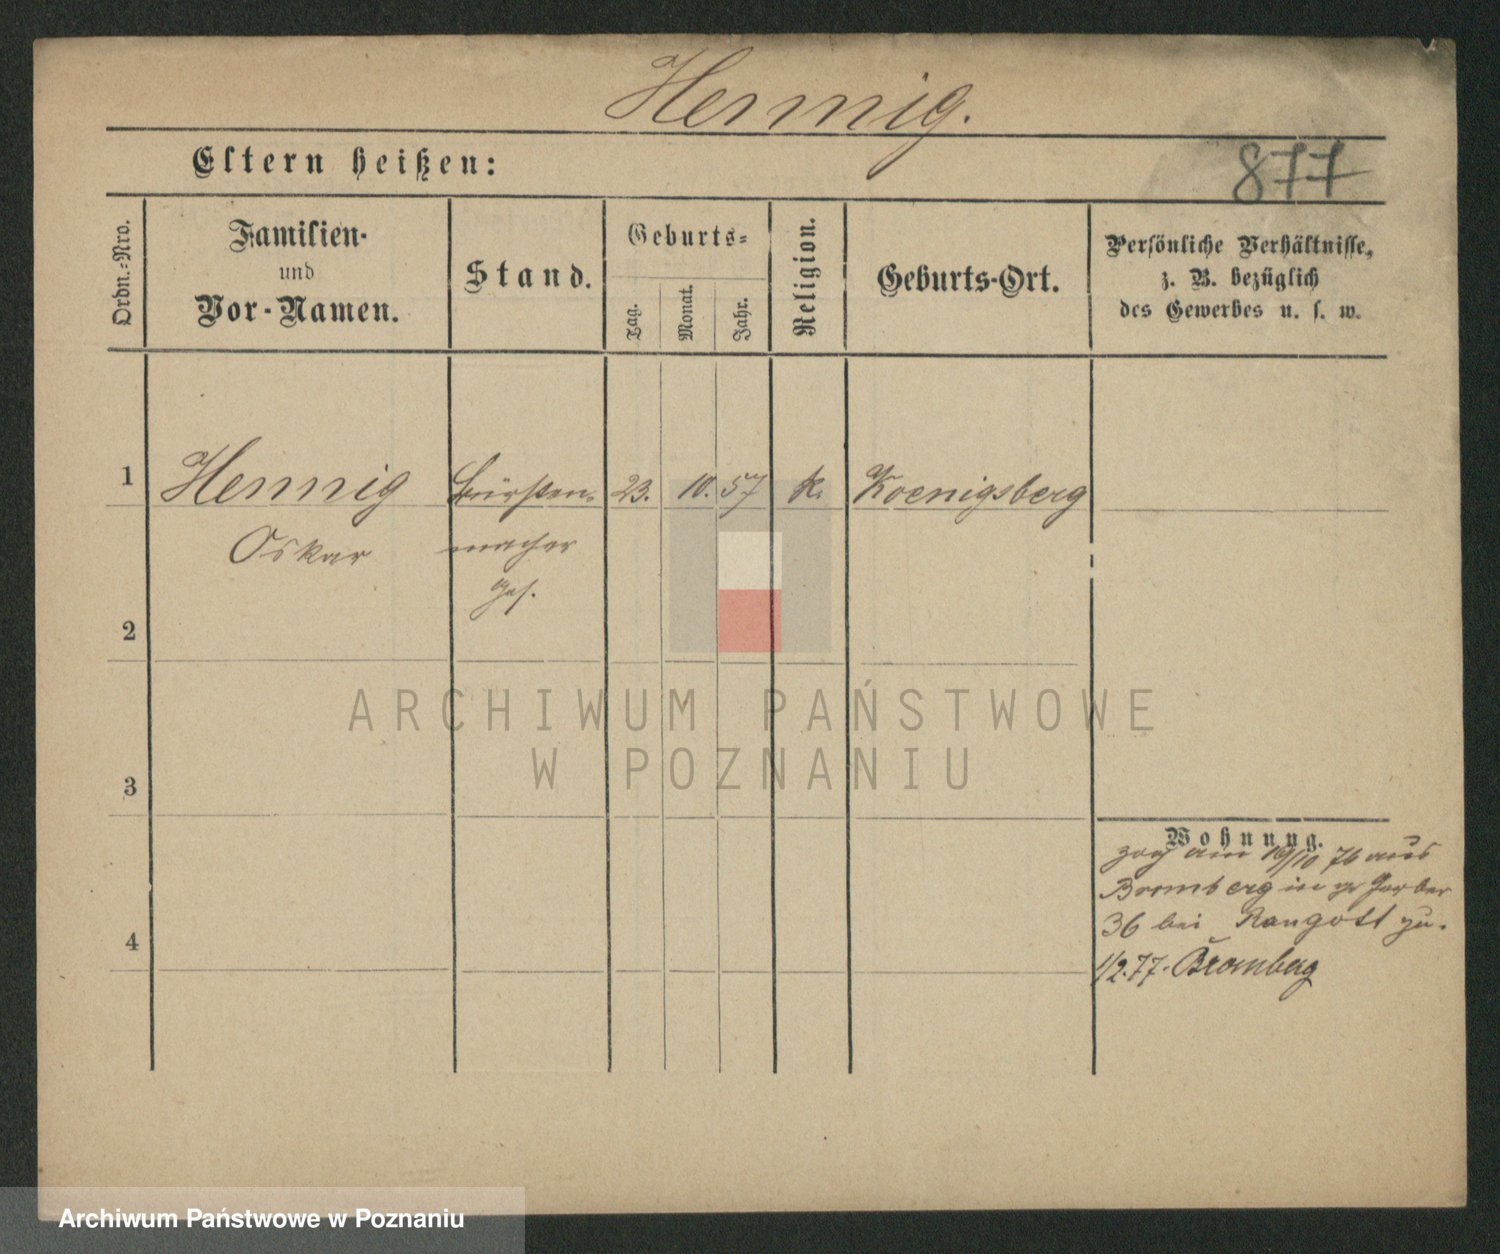 Hennig.
Eltern heißen:
877
Ordn.-Nro.
Familien-
und
Vor-Namen.
Stand.
Geburts-
Tag.
Monat.
Jahr.
Religion.
Geburts-Ort.
Persönliche Verhältnisse,
z. B. bezüglich
des Gewerbes u. s. w.
1
Hennig
Bürsten-
23.
10.
57
k.
Koenigsberg
Oskar
macher
Ges.
2
ARCHIWUM PAŃSTWOWE
W POZNANIU
3
Wohnung.
zog am 19/10 76 aus
Bromberg in gr Gerber
36 bei Rangott zu.
4
1/2.77. Bromberg
Archiwum Państwowe w Poznaniu